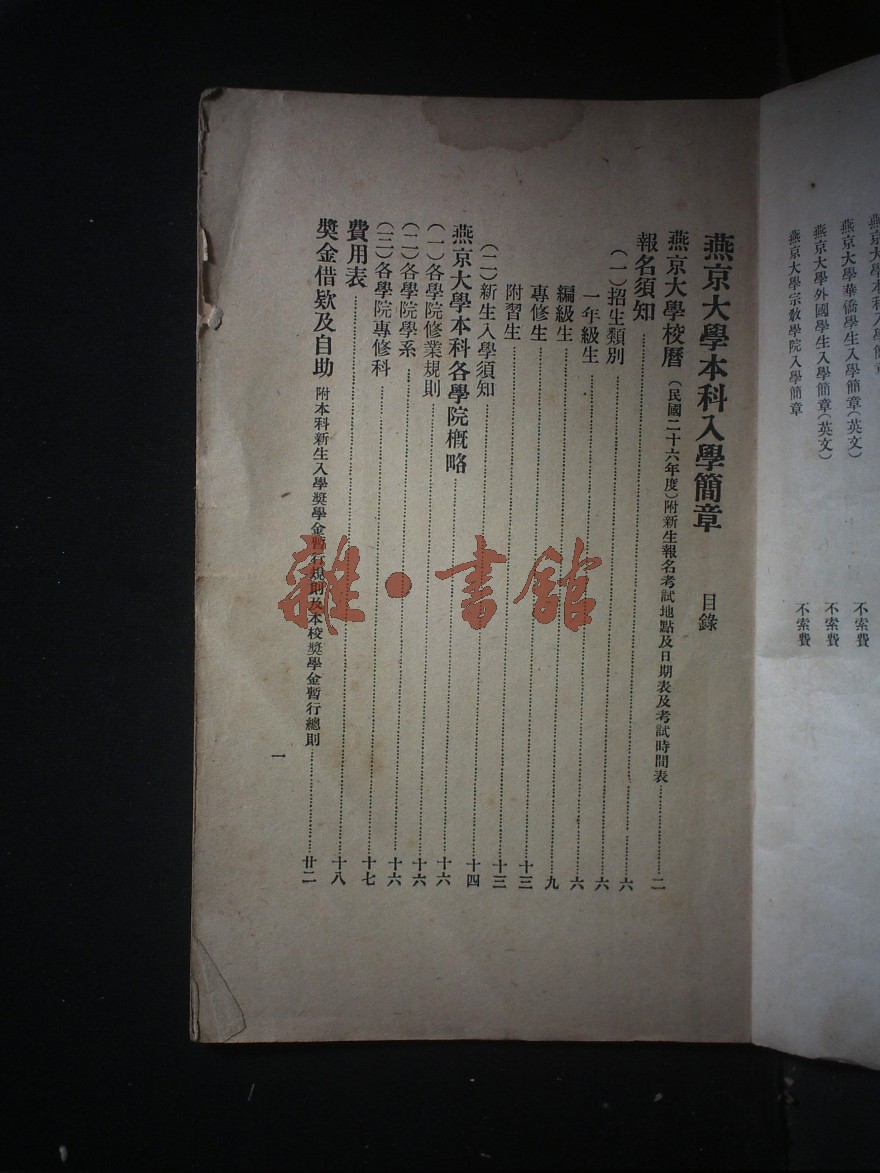 燕京大學本科入學簡章
燕京大學華僑學生入學簡章(英文) 不索費
燕京大學外國學生入學簡章(英文) 不索費
燕京大學宗教學院入學簡章 不索費
燕京大學本科入學簡章 目錄
燕京大學校曆(民國二十六年度)附新生報名考試地點及日期表及考試時間表……二
報名須知……六
(一)招生類別……六
一年級生……六
編級生……九
專修生……十三
附習生……十三
(二)新生入學須知……十四
燕京大學本科各學院槪略……十六
(一)各學院修業規則……十六
(二)各學院學系……十六
(三)各學院專修科……十七
費用表……十八
獎金借欵及自助 附本科新生入學獎學金暫行規則及本校獎學金暫行總則……廿二
一
雜·書館